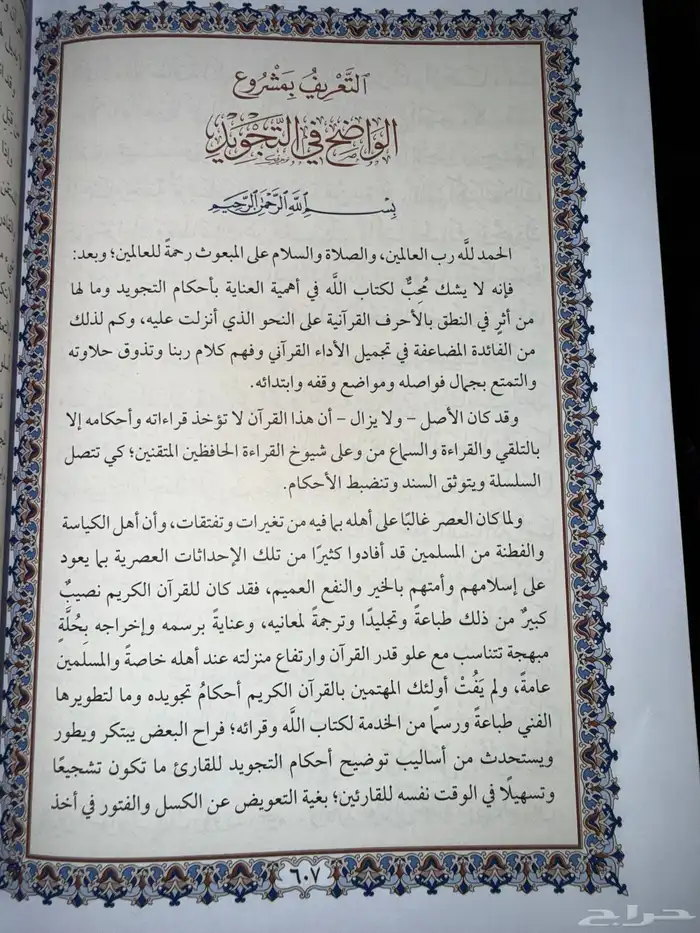 التَّعْرِيفُ بِمَشْرُوعِ
الوَاضِحُ فِي التَّجْوِيدِ
بِسْمِ ٱللَّهِ ٱلرَّحْمَٰنِ ٱلرَّحِيمِ
الحمد للَّه رب العالمين، والصلاة والسلام على المبعوث رحمةً للعالمين؛ وبعد:
فإنه لا يشك مُحِبٌّ لكتاب اللَّه في أهمية العناية بأحكام التجويد وما لها
من أثرٍ في النطق بالأحرف القرآنية على النحو الذي أنزلت عليه، وكم لذلك
من الفائدة المضاعفة في تجميل الأداء القرآني وفهم كلام ربنا وتذوق حلاوته
والتمتع بجمال فواصله ومواضع وقفه وابتدائه.
وقد كان الأصل – ولا يزال – أن هذا القرآن لا تؤخذ قراءاته وأحكامه إلا
بالتلقي والقراءة والسماع من وعلى شيوخ القراءة الحافظين المتقنين؛ كي تتصل
السلسلة ويتوثق السند وتنضبط الأحكام.
ولما كان العصر غالبًا على أهله بما فيه من تغيرات وتفتقات، وأن أهل الكياسة
والفطنة من المسلمين قد أفادوا كثيرًا من تلك الإحداثات العصرية بما يعود
على إسلامهم وأمتهم بالخير والنفع العميم، فقد كان للقرآن الكريم نصيبٌ
كبيرٌ من ذلك طباعةً وتجليدًا وترجمةً لمعانيه، وعنايةً برسمه وإخراجه بِحُلَّةٍ
مبهجة تتناسب مع علو قدر القرآن وارتفاع منزلته عند أهله خاصةً والمسلمين
عامةً، ولم يَفُتْ أولئك المهتمين بالقرآن الكريم أحكامُ تجويده وما لتطويرها
الفني طباعةً ورسمًا من الخدمة لكتاب اللَّه وقرائه؛ فراح البعض يبتكر ويطور
ويستحدث من أساليب توضيح أحكام التجويد للقارئ ما تكون تشجيعًا
وتسهيلًا في الوقت نفسه للقارئين؛ بغية التعويض عن الكسل والفتور في أخذ
٦٠٧
حراج